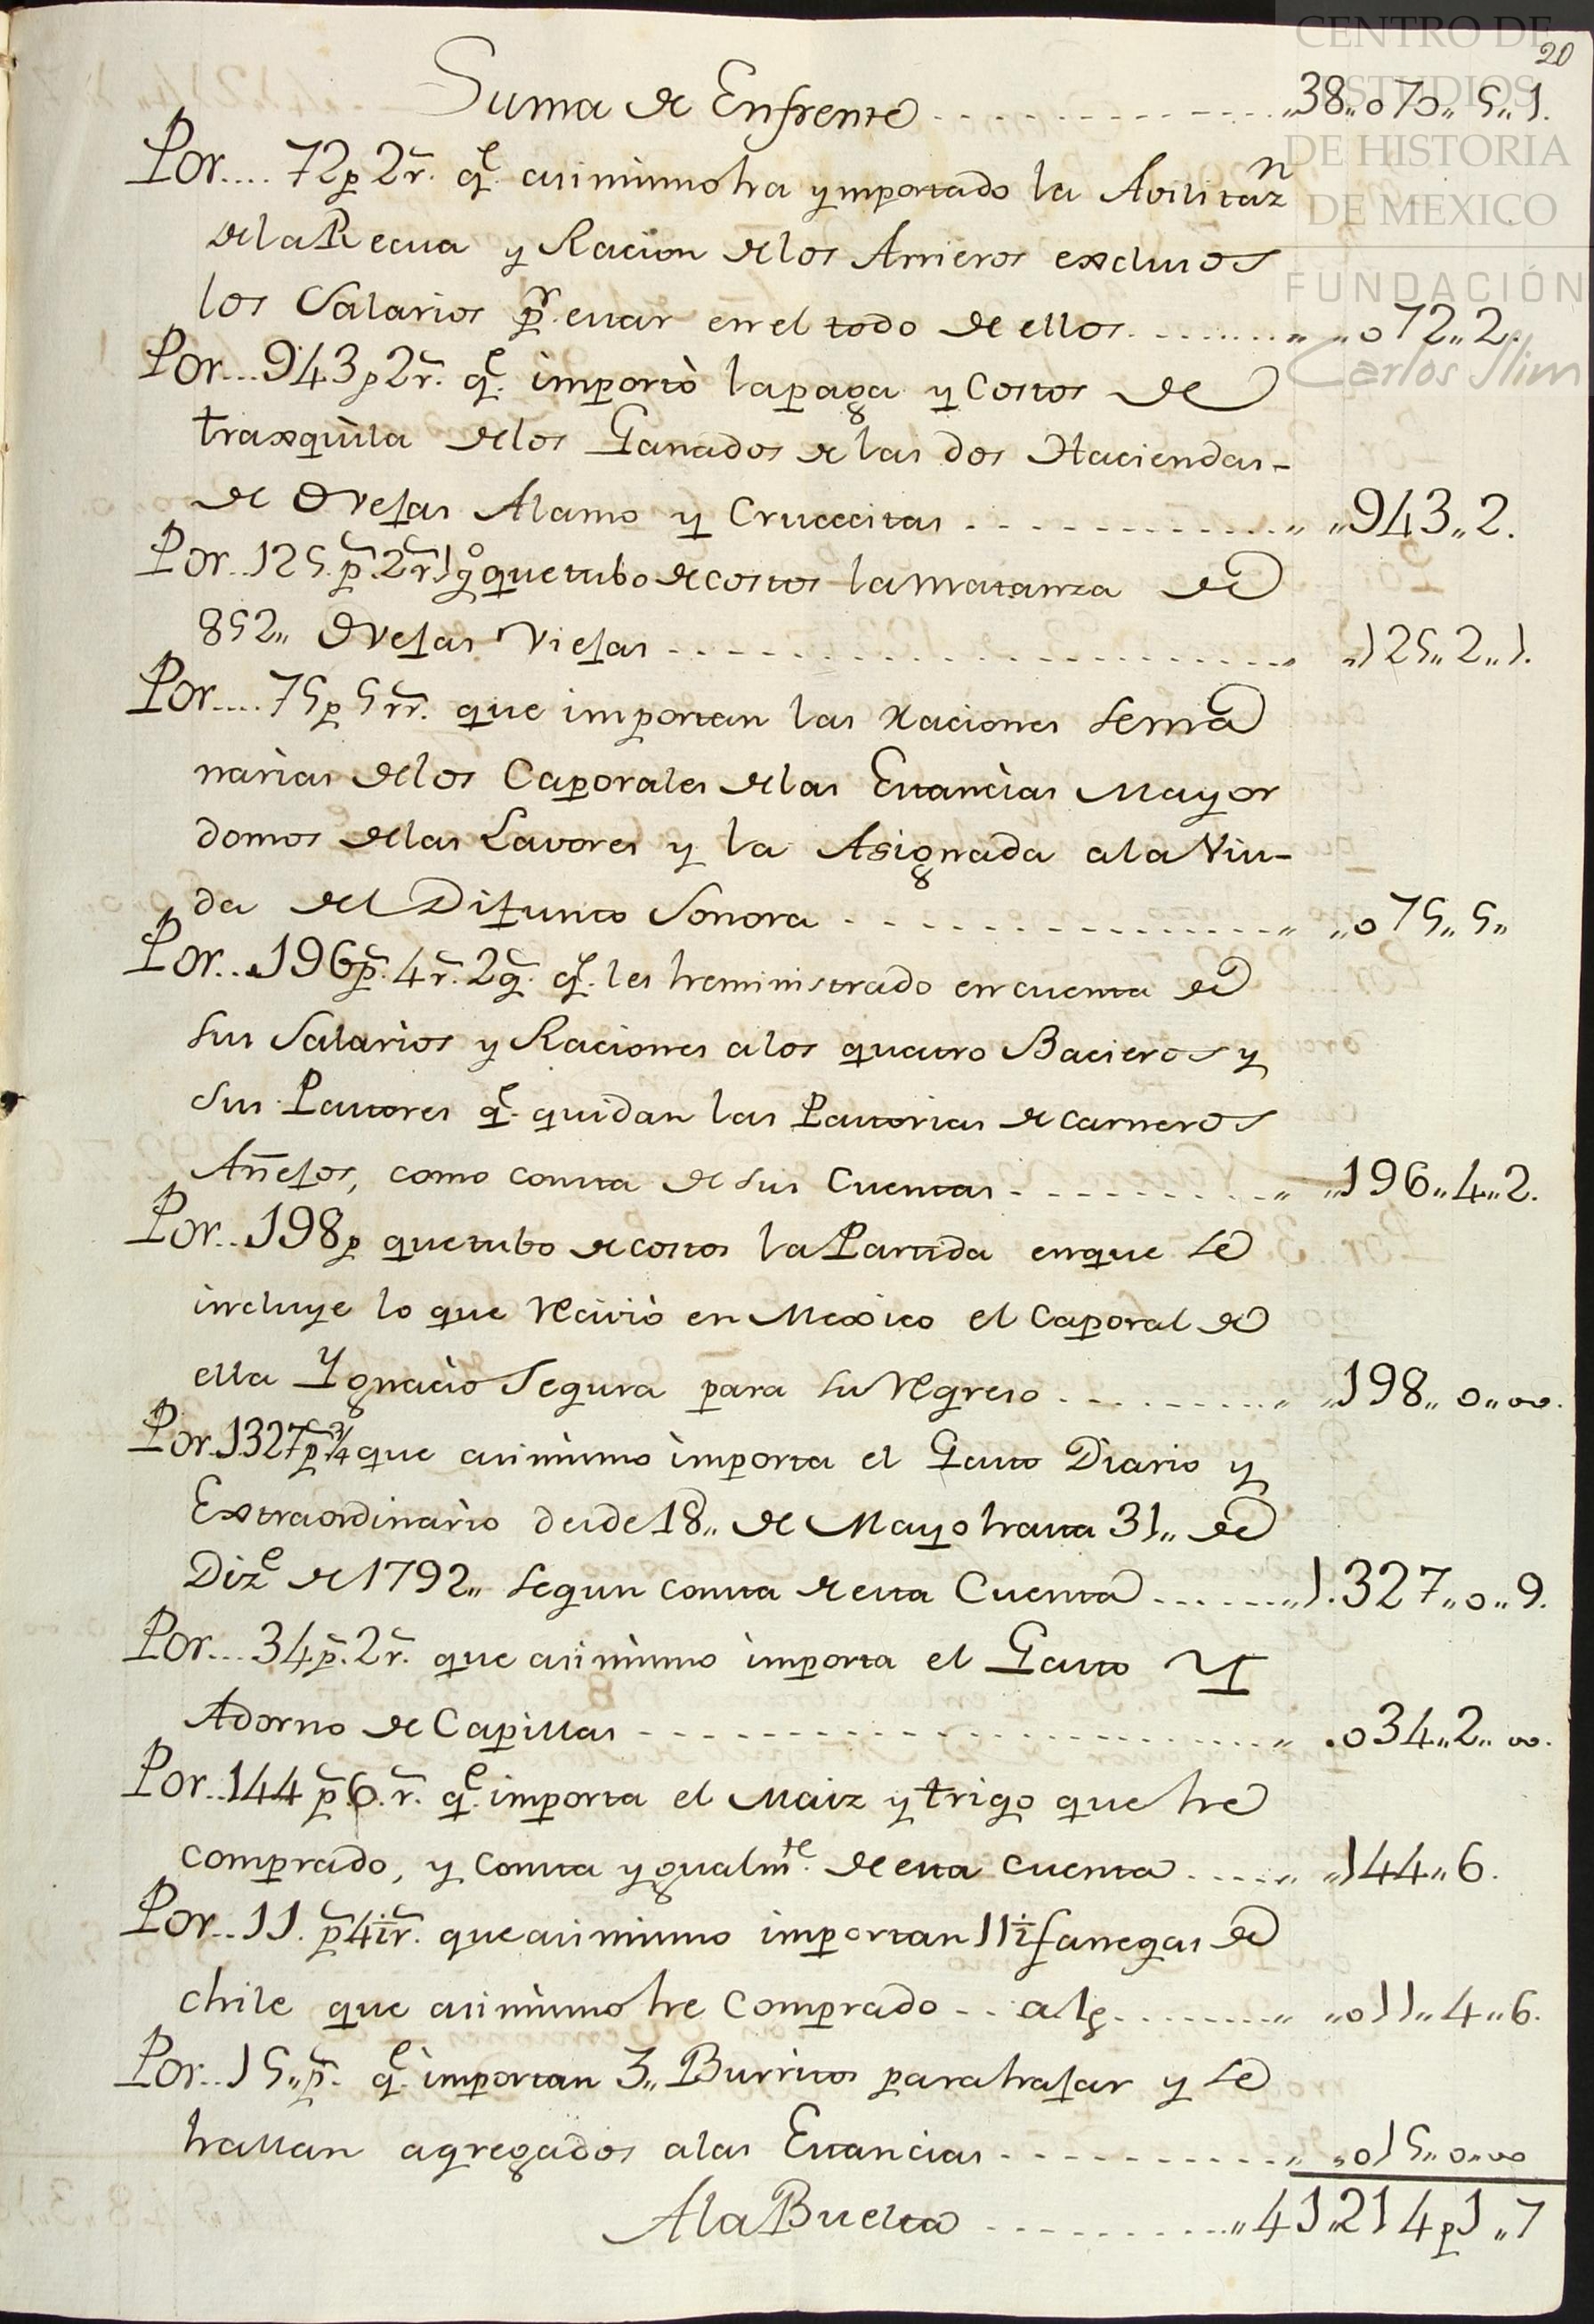 20
Suma de Enfrente „38„070„5„1.
Por.... 72p 2r̃. q̃e asimismo ha ymportado la Avilitazn
de la Recua y Racion de los Arrieros exclusos
los Salarios pr. estar en el todo de ellos „ „072„2.
Por...943p2r̃. q̃e importò la paga y Costos de
traxquila de los Ganados de las dos Haciendas-
de Ovejas Alamo y Crucecitas „ „943„2.
Por..125.p̃.2r̃1go que tubo de costos la Matanza de
852„ Ovejas Viejas „ „125„2„1.
Por....75p5rr̃. que importan las Raciones sema
narias de los Caporales de las Estancias Mayor
domos de las Lavores y la Asignada a la Viu-
da del Difunto Sonora „ „075„5„
Por...196p̃.4r̃.2g̃. q̃e. les he ministrado en cuenta de
sus Salarios y Raciones a los quatro Bacieros y
sus Pastores q̃e. quidan las Pastorias de carneros
Añejos, como consta de sus Cuentas „ „196„4„2.
Por..198p que tubo de costos la Partida en que se
incluye lo que Recivio en Mexico el Caporal de
ella Ygnacio Segura para su Regreso „ „198„0„00.
Por.1327p̃3/4 que asimismo importa el Gasto Diario y
Extraordinario desde 18„ de Mayo hasta 31„ de
Dize de 1792„ segun consta de esta Cuenta „1.327„0„9.
Por...34p̃.2r̃. que asimismo importa el Gasto Y
Adorno de Capillas „ .034„2„00.
Por..144p̃6.r̃. q̃e importa el Maiz y trigo que he
comprado, y consta ygualmte. de esta cuenta „ „144„6.
Por..11.p̃4½r̃. que asimismo importan 11½ fanegas de
chile que asimismo he Comprado -- a 1p „ „011„4„6.
Por..15„p̃. q̃e importan 3„ Burritos para hajar y se
hallan agregados a las Estancias „ „015„0„00
A la Buelta „41„214p1„7
CENTRO DE
ESTUDIOS
DE HISTORIA
DE MEXICO
FUNDACIÓN
Carlos Slim